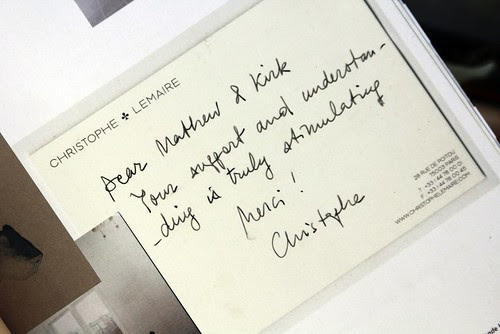 CHRISTOPHE LEMAIRE
Dear Mathew & Kirk
Your support and understan-
-ding is truly stimulating
Merci !
Christophe
28 RUE DE POITOU
75003 PARIS
T +33 1 44 78 00 01
F +33 1 44 78 00 43
WWW.CHRISTOPHELEMAIRE.COM